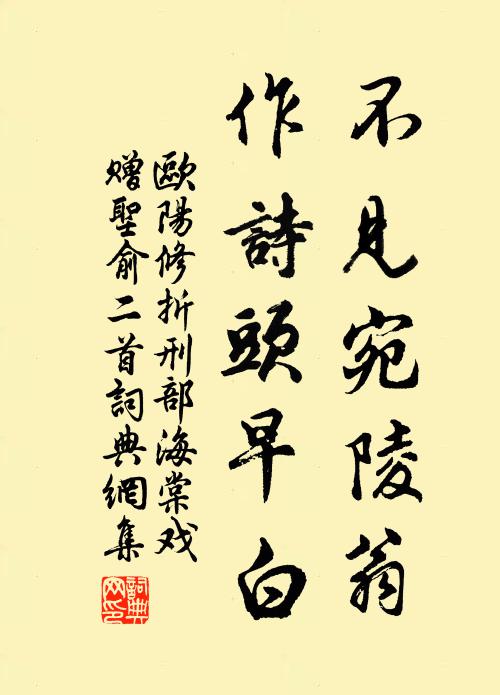 不見宛陵翁
作詩頭早白
歐陽修折刑部海棠戏
赠聖俞二首詞典網集
詞典
网印